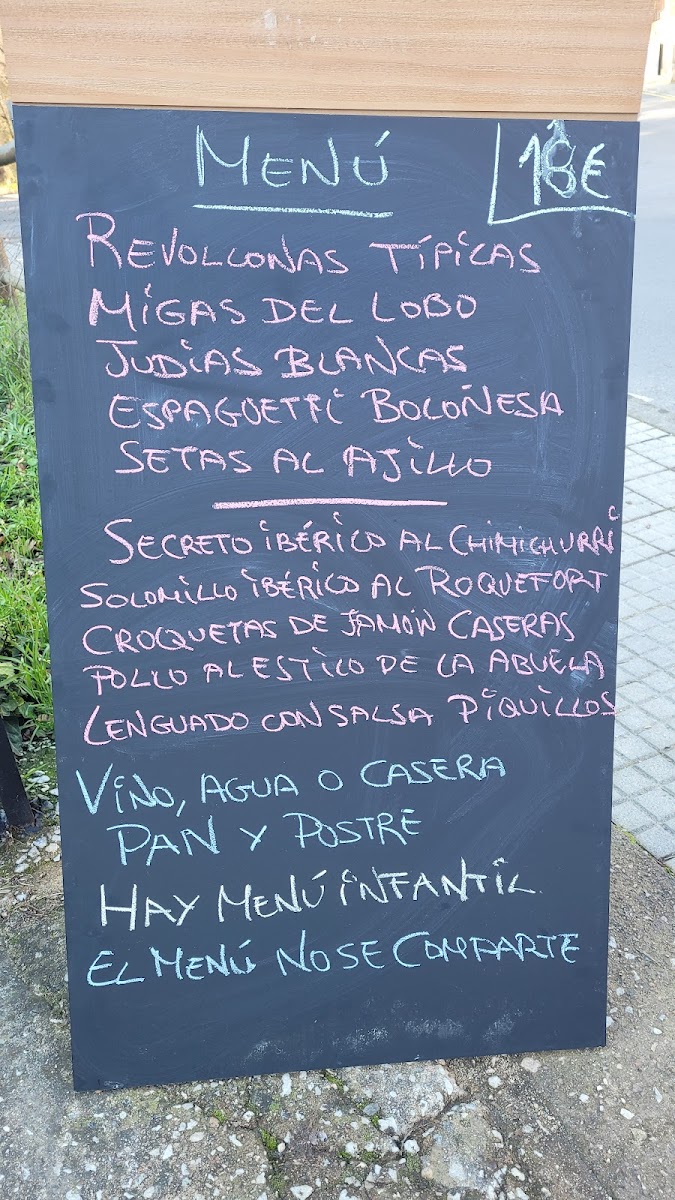 MENÚ
18€
REVOLCONAS TÍPICAS
MIGAS DEL LOBO
JUDIAS BLANCAS
ESPAGUETTI BOLOÑESA
SETAS AL AJILLO
SECRETO IBÉRICO AL CHIMICHURRI
SOLOMILLO IBÉRICO AL ROQUEFORT
CROQUETAS DE JAMÓN CASERAS
POLLO AL ESTILO DE LA ABUELA
LENGUADO CON SALSA PIQUILLOS
VINO, AGUA O CASERA
PAN Y POSTRE
HAY MENÚ INFANTIL
EL MENÚ NO SE COMPARTE